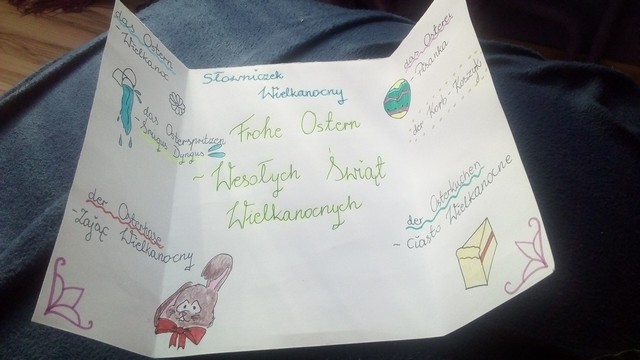 das Ostern
- Wielkanoc
das Osterspritzen
Śmigus Dyngus
der Osterhase
- Zając Wielkanocny
Słowniczek
Wielkanocny
Frohe Ostern
~ Wesołych Świąt
Wielkanocnych
das Osterei
Pisanka
der Korb Koszyk
der Osterkuchen
~ Ciasto Wielkanocne